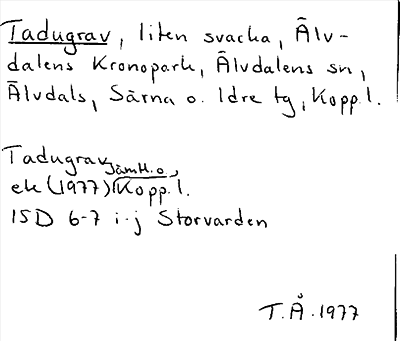 Tadugrav, liten svacka, Älv-
dalens Kronopark, Älvdalens sn,
Älvdals, Särna o. Idre tg, Kopp.l.
Tadugrav
Jämtl. o.,
ek (1977) Kopp.l.
15D 6-7 i-j Storvarden
T.Å. 1977